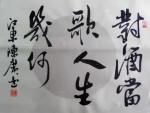 對酒當
歌人生
幾何